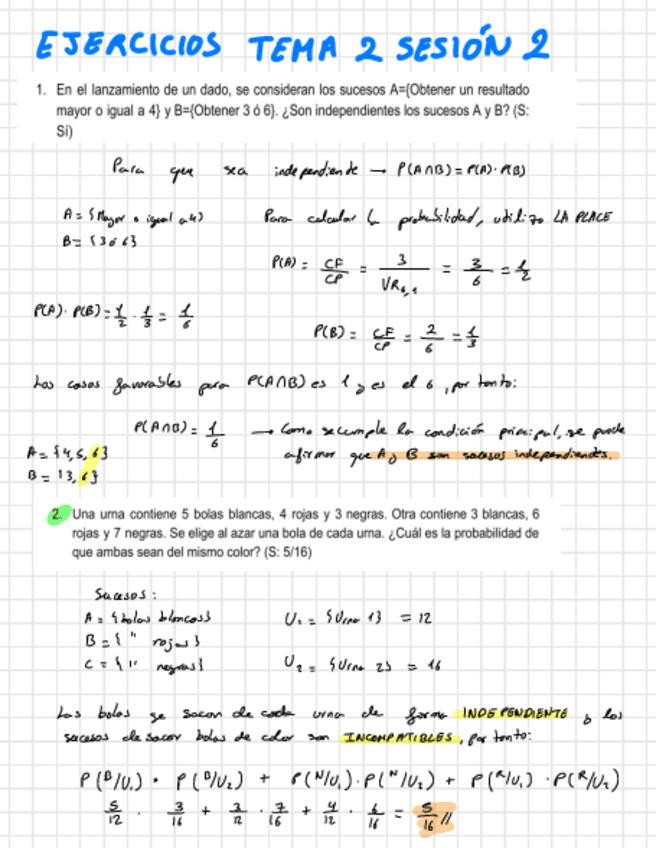 EJERCICIOS TEMA 2 SESIÓN 2
1. En el lanzamiento de un dado, se consideran los sucesos A={Obtener un resultado
mayor o igual a 4} y B={Obtener 3 ó 6}. ¿Son independientes los sucesos A y B? (S:
Sí)
Para que sea independiente → P(A∩B) = P(A)·P(B)
A = {Mayor o igual a 4}
B = {3 ó 6}
Para calcular la probabilidad, utilizo LA PLACE
P(A) = CF/CP = 3/VR6,1 = 3/6 = 1/2
P(A)·P(B) = 1/2 · 1/3 = 1/6
P(B) = CF/CP = 2/6 = 1/3
Los casos favorables para P(A∩B) es 1 y es el 6, por tanto:
P(A∩B) = 1/6 → Como se cumple la condición principal, se puede
afirmar que A y B son sucesos independientes.
A = {4,5,6}
B = {3,6}
2. Una urna contiene 5 bolas blancas, 4 rojas y 3 negras. Otra contiene 3 blancas, 6
rojas y 7 negras. Se elige al azar una bola de cada urna. ¿Cuál es la probabilidad de
que ambas sean del mismo color? (S: 5/16)
Sucesos:
A = {bolas blancas}
B = { " rojas}
C = { " negras}
U1 = {Urna 1} = 12
U2 = {Urna 2} = 16
Las bolas se sacan de cada urna de forma INDEPENDIENTE y los
sucesos de sacar bolas de color son INCOMPATIBLES, por tanto:
P(B/U1) · P(B/U2) + P(N/U1)·P(N/U2) + P(R/U1)·P(R/U2)
5/12 · 3/16 + 3/12 · 7/16 + 4/12 · 6/16 = 5/16 //